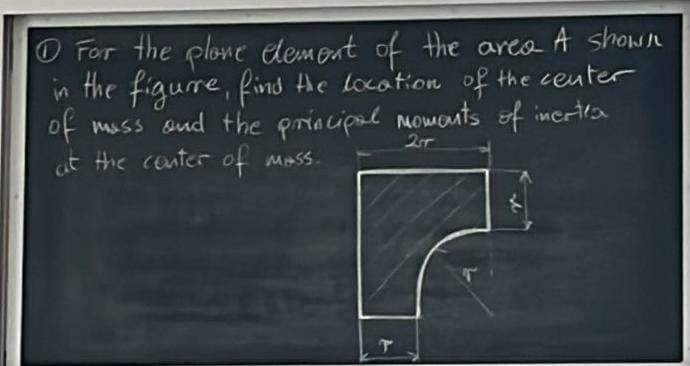 ① For the plane element of the area A shown
in the figure, find the location of the center
of mass and the principal moments of inertia
at the center of mass.
2r
r
r
r